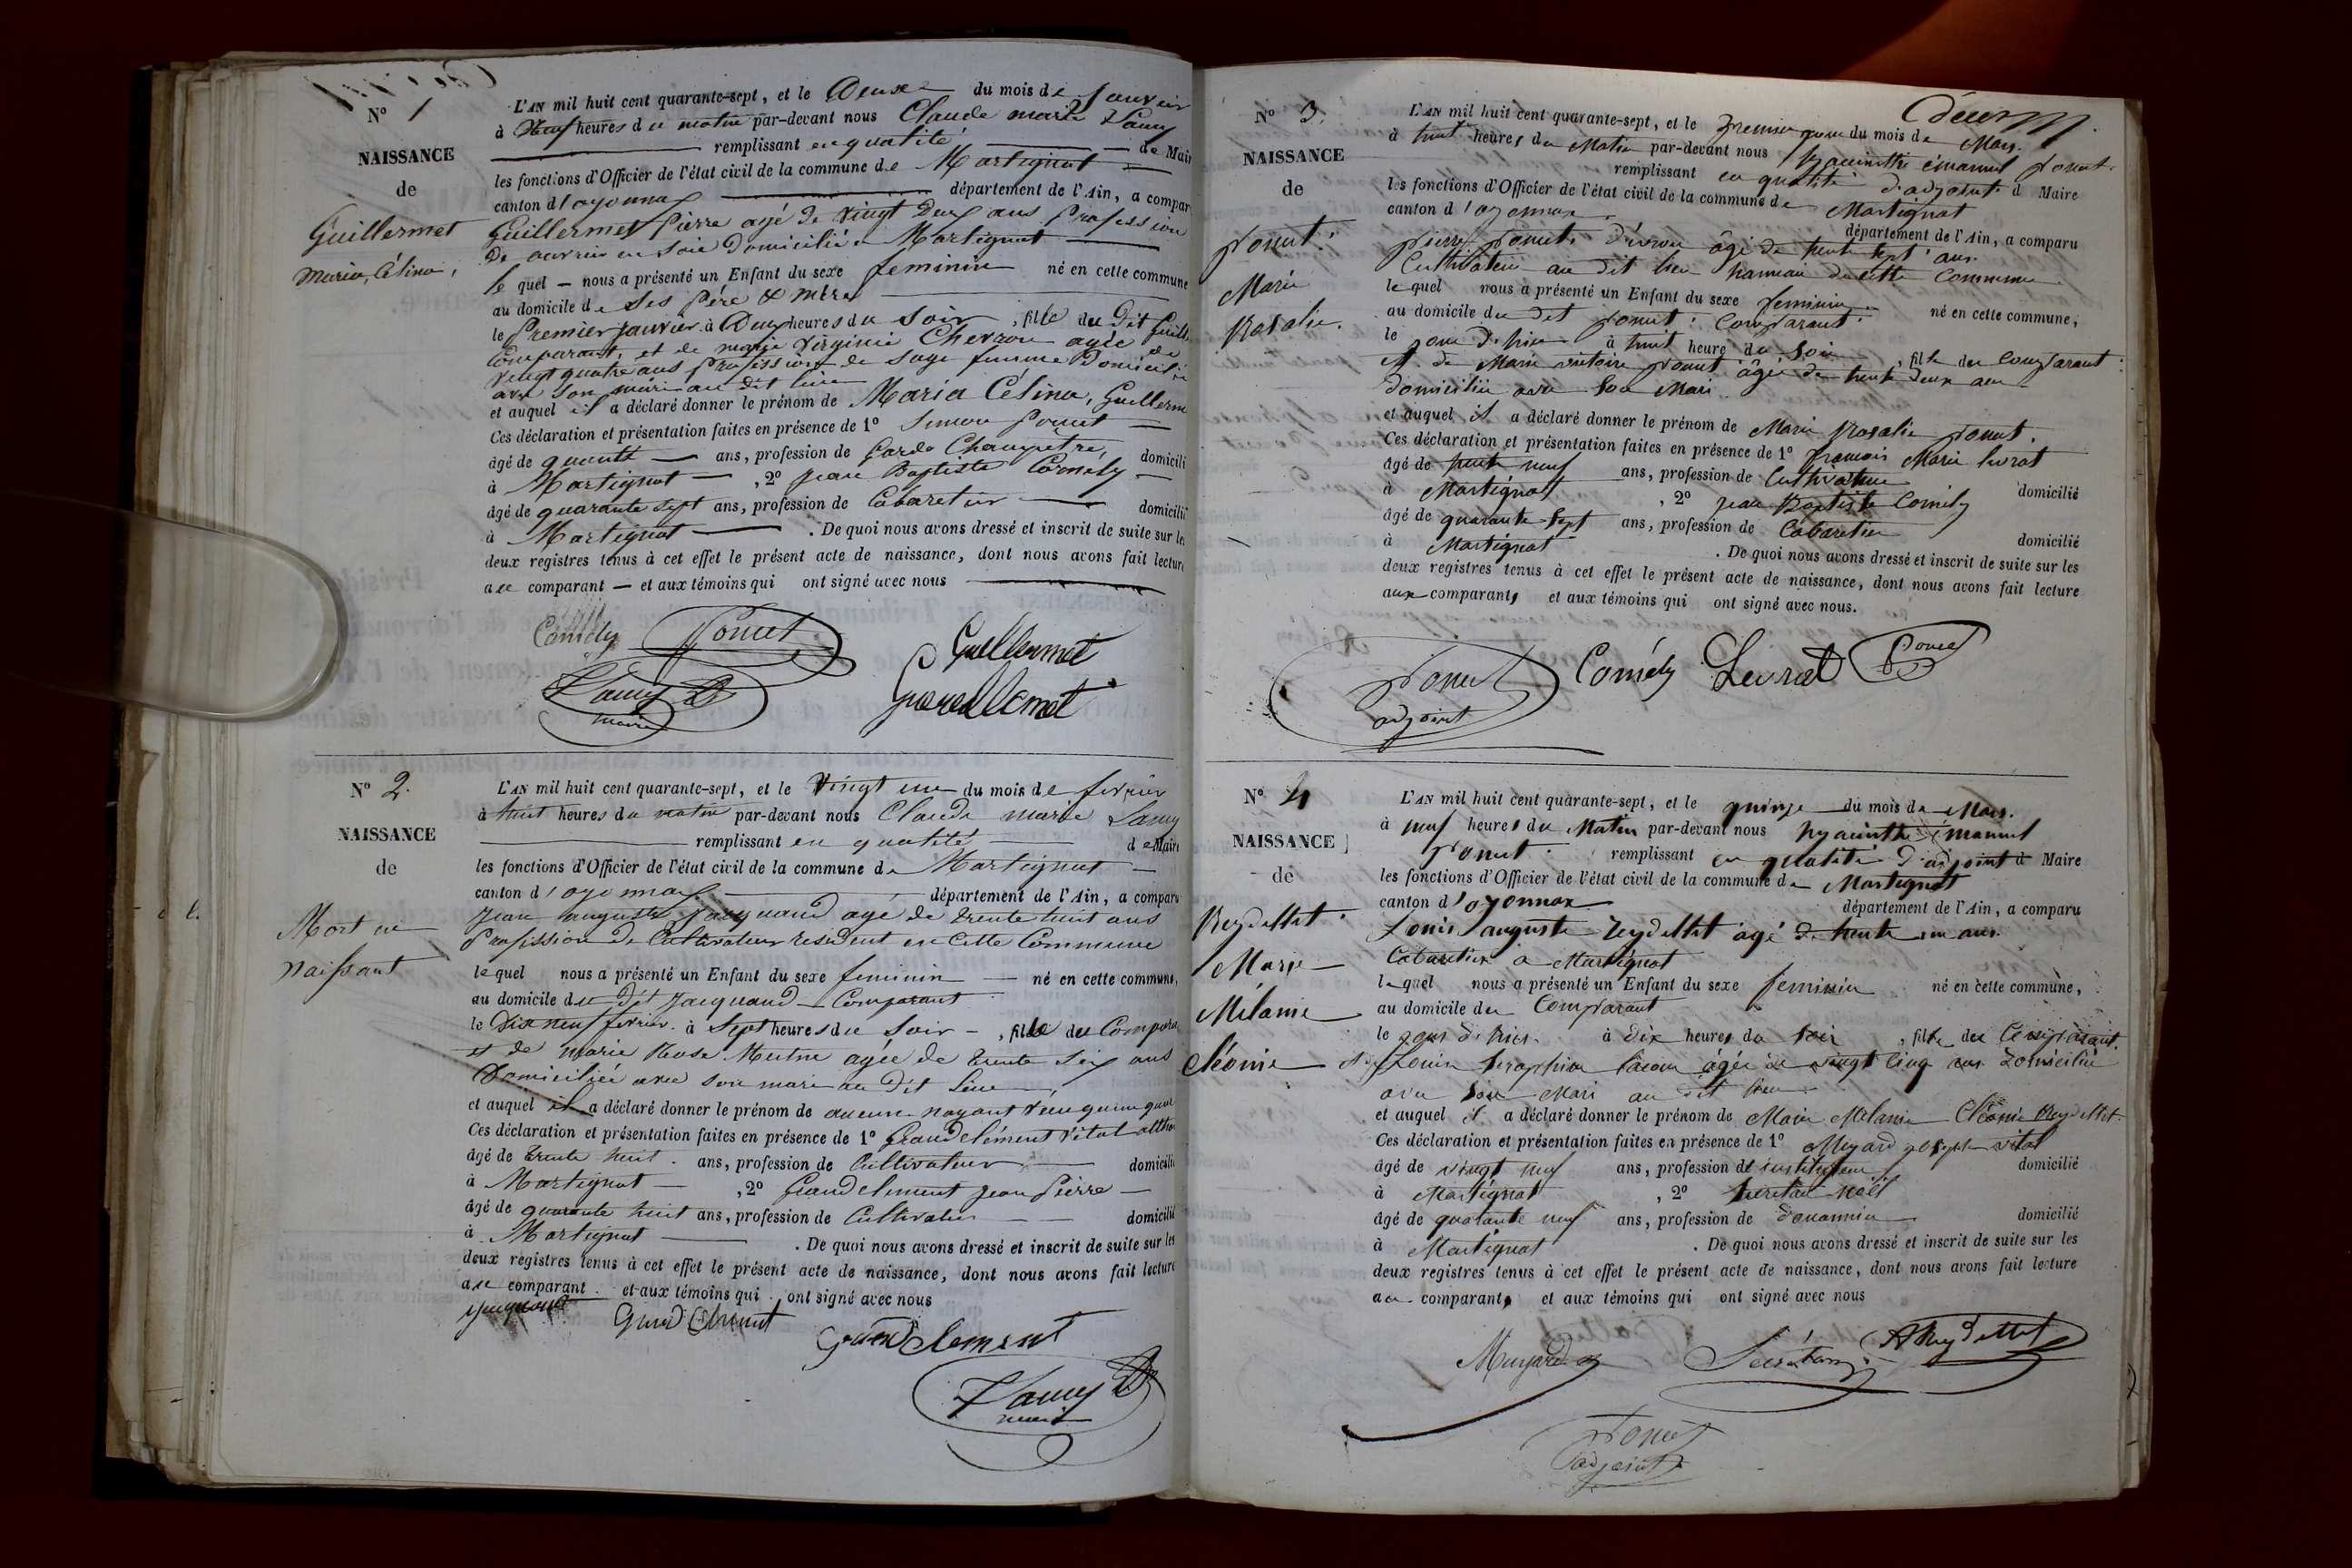 N° 1
NAISSANCE
de
Guillermet
Maria, Célina,
L'AN mil huit cent quarante-sept, et le Deuxe du mois de Janvier
à Neuf heures du matin par-devant nous Claude marie Lamy
remplissant en qualité de Mair
les fonctions d'Officier de l'état civil de la commune de Martignat
canton d'oyonnax département de l'Ain, a compar
Guillermet Pierre agé de vingt Deux ans Profession
De ouvrier en soie Domicilié a Martignat
le quel — nous a présenté un Enfant du sexe feminin né en cette commune
au domicile de ses Père & mère
le Premier janvier à Deux heures du soir , fille du Dit Guill
Comparant, et de marie Virginie Chevron agée de
vingt quatre ans profession de sage femme Domicili
avec son mari au dit lieu
et auquel il a déclaré donner le prénom de Maria Célina, Guillerm
Ces déclaration et présentation faites en présence de 1° Simon Poncet
âgé de ans, profession de Garde Champetre, domicili
à Martignat — , 2° Jean Baptiste Comély
âgé de quarante sept ans, profession de Cabaretier domicilié
à Martignat . De quoi nous avons dressé et inscrit de suite sur les
deux registres tenus à cet effet le présent acte de naissance, dont nous avons fait lecture
au comparant — et aux témoins qui ont signé avec nous
Comély Poncet Guillermet
Lamy Guillermet
maire
N° 2.
NAISSANCE
de
Mort en
Naissant
L'AN mil huit cent quarante-sept, et le vingt une du mois de fevrier
à huit heures du matin par-devant nous Claude marie Lamy
remplissant en qualité de Maire
les fonctions d'Officier de l'état civil de la commune de Martignat
canton d'oyonnax département de l'Ain, a comparu
Jean auguste Jacquand agé de trente huit ans
Profession de Cultivateur resident en cette Commune
le quel nous a présenté un Enfant du sexe feminin né en cette commune,
au domicile du dit Jacquand Comparant
le Dix neuf fevrier à Sept heures du Soir — , fille du Compara
et de marie Rose agée de trente Six ans
Domiciliée avec son mari au Dit Lieu
et auquel il a déclaré donner le prénom de aucun nayant
Ces déclaration et présentation faites en présence de 1° Grandclément Vital
âgé de trente huit ans, profession de Cultivateur domicilié
à Martignat — , 2° Grandclement Jean Pierre —
âgé de quarante huit ans, profession de Cultivateur domicilié
à Martignat . De quoi nous avons dressé et inscrit de suite sur les
deux registres tenus à cet effet le présent acte de naissance, dont nous avons fait lecture
au comparant et aux témoins qui ont signé avec nous
Jacquand Grand Clément
Grandclement
Lamy
maire
N° 3.
NAISSANCE
de
Poncet
Marie
Rosalie.
L'AN mil huit cent quarante-sept, et le Premier jour du mois de Mars.
à huit heures du Matin par-devant nous hyacinthe émanuel Poncet
remplissant en qualité d'adjoint d Maire
les fonctions d'Officier de l'état civil de la commune de Martignat
canton d'oyonnax département de l'Ain, a comparu
Pierre Poncet âgé de trente sept ans.
Cultivateur au dit lieu hameau de cette Commune
le quel nous a présenté un Enfant du sexe feminin né en cette commune,
au domicile du dit Poncet Comparant.
le jour d'hier à huit heure du Soir , fille du Comparant
et de Marie victoire Poncet âgée de trente deux ans
domiciliée avec Son Mari
et auquel il a déclaré donner le prénom de Marie Rosalie Poncet.
Ces déclaration et présentation faites en présence de 1° François Marie Livrat
âgé de trente neuf ans, profession de Cultivateur domicilié
à Martignat , 2° Jean Baptiste Comély
âgé de quarante Sept ans, profession de Cabaretier domicilié
à Martignat . De quoi nous avons dressé et inscrit de suite sur les
deux registres tenus à cet effet le présent acte de naissance, dont nous avons fait lecture
aux comparants et aux témoins qui ont signé avec nous.
Poncet Comély Levrat Poncet
adjoint
N° 4
NAISSANCE
de
Reydellet
Marie
Mélanie
Cléonie
L'AN mil huit cent quarante-sept, et le quinze du mois de Mars.
à neuf heures du Matin par-devant nous hyacinthe émanuel
Poncet remplissant en qualité d'adjoint d Maire
les fonctions d'Officier de l'état civil de la commune de Martignat
canton d'oyonnax département de l'Ain, a comparu
Louis auguste Reydellet âgé de trente un ans.
Cabaretier a Martignat
le quel nous a présenté un Enfant du sexe feminin né en cette commune,
au domicile du Comparant
le jour d'hier. à dix heures du soir , fille du Comparant.
et de Louise Seraphine âgée de vingt cinq ans domiciliée
avec Son Mari au dit lieu
et auquel il a déclaré donner le prénom de Marie Mélanie Cléonie Reydellet.
Ces déclaration et présentation faites en présence de 1° Muyard joseph vital
âgé de vingt neuf ans, profession de instituteur domicilié
à Martignat , 2° Secretan noël
âgé de quarante neuf ans, profession de douannier domicilié
à Martignat . De quoi nous avons dressé et inscrit de suite sur les
deux registres tenus à cet effet le présent acte de naissance, dont nous avons fait lecture
au comparant, et aux témoins qui ont signé avec nous
Muyard Secrétan AReydellet
Poncet
adjoint